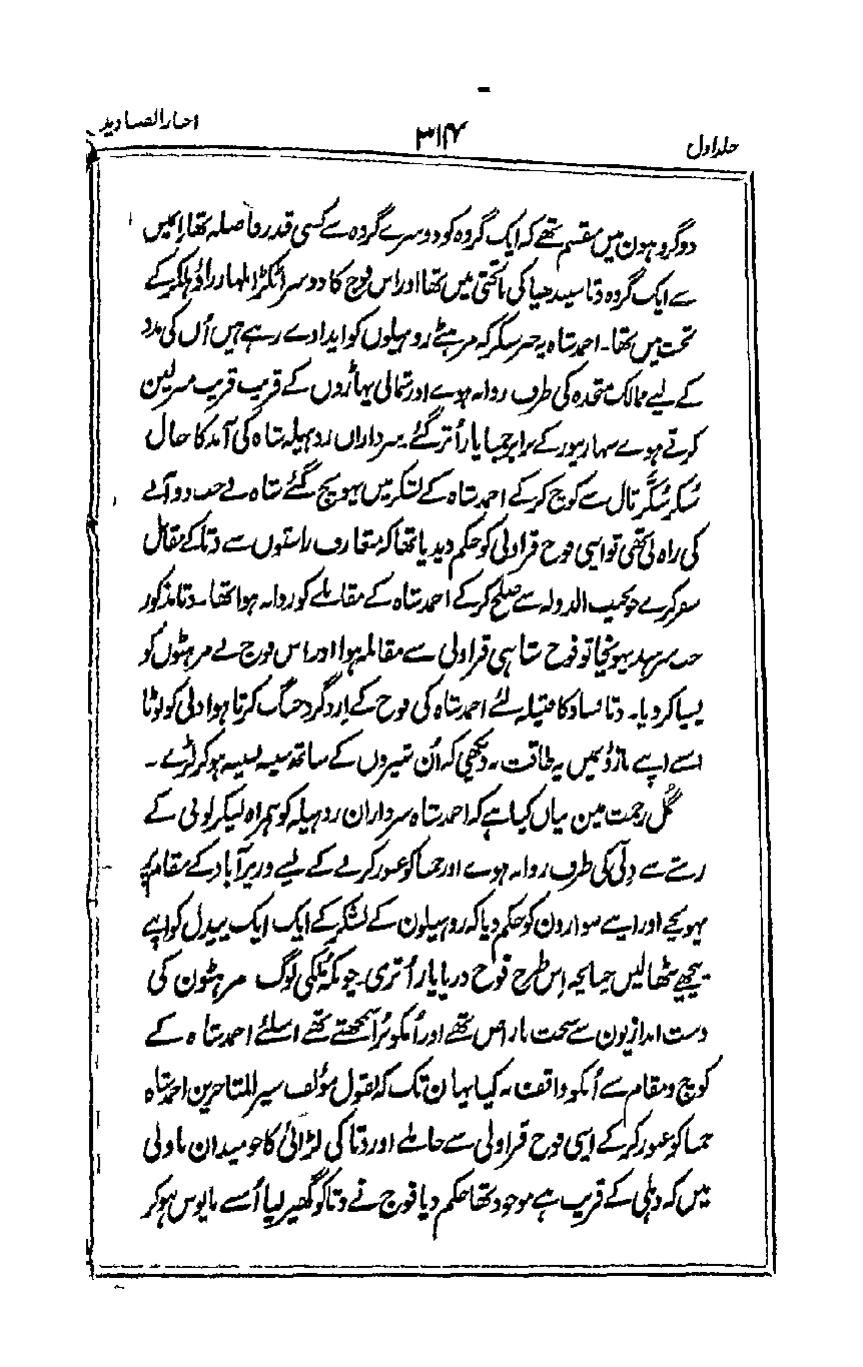 جلد اول
۳۱۷
اخبار الصنادید
دو گروہون میں منقسم تھے کہ ایک گروہ کو دوسرے گروہ سے کسی قدر فاصلہ تھا اِنمیں
سے ایک گروہ دتا سیندھیا کی ماتحتی میں تھا اور اس فوج کا دوسرا ٹکڑا ملہار راؤ ہلکر کے
تحت میں تھا۔ احمد شاہ یہ خبر سنکر کہ مرہٹے روہیلوں کو ایذا دے رہے ہیں اُن کی مدد
کے لیے ممالک متحدہ کی طرف روانہ ہوے اور شمالی پہاڑوں کے قریب قریب سرزمین
کرتے ہوے سہارنپور کے برابر جمنا پار اُتر گئے۔ سرداراں روہیلہ شاہ کی آمد کا حال
سُنکر سُکَّر تال سے کوچ کر کے احمد شاہ کے لشکر میں پہونچ گئے شاہ نے جب دوآبے
کی راہ لی تھی تو اپنی فوج قراولی کو حکم دیدیا تھا کہ متعارف راستوں سے دتا کے مقابل
سفر کرے جو نجیب الدولہ سے صلح کر کے احمد شاہ کے مقابلے کو روانہ ہوا تھا۔ دتا مذکور
جب سرہند پہونچا تو فوج شاہی قراولی سے مقابلہ ہوا اور اس فوج نے مرہٹوں کو
پسپا کر دیا۔ دتا فساد کا فتیلہ لئے احمد شاہ کی فوج کے اِرد گرد جنگ کرتا ہوا دلی کو لوٹا
اسنے اپنے بازؤں میں یہ طاقت نہ دیکھی کہ اُن شیروں کے ساتھ سینہ بسینہ ہو کر لڑے۔
گُل رحمت مین بیاں کیا ہے کہ احمد شاہ سرداران روہیلہ کو ہمراہ لیکر لونی کے
رستے سے دلّی کی طرف روانہ ہوے اور جمنا کو عبور کرنے کے لیے وزیر آباد کے مقام پر
پہونچے اور اپنے سوارون کو حکم دیا کہ روہیلون کے لشکر کے ایک ایک پیدل کو اپنے
پیچھے بٹھا لیں چنانچہ اِس طرح فوج دریا پار اُتری۔ چونکہ مُلکی لوگ مرہٹون کی
دست اندازیون سے سخت ناراض تھے اور اُنکو بُرا سمجھتے تھے اسلئے احمد شاہ کے
کوچ و مقام سے اُنکو واقف نہ کیا یہا ن تک کہ بقول مؤلف سیر المتاخرین احمد شاہ
جمنا کو عبور کر کے اپنی فوج قراولی سے جا ملے اور دتا کی لڑائی کا جو میدان باولی
میں کہ دہلی کے قریب ہے موجود تھا حکم دیا فوج نے دتا کو گھیر لیا اُسنے مایوس ہو کر